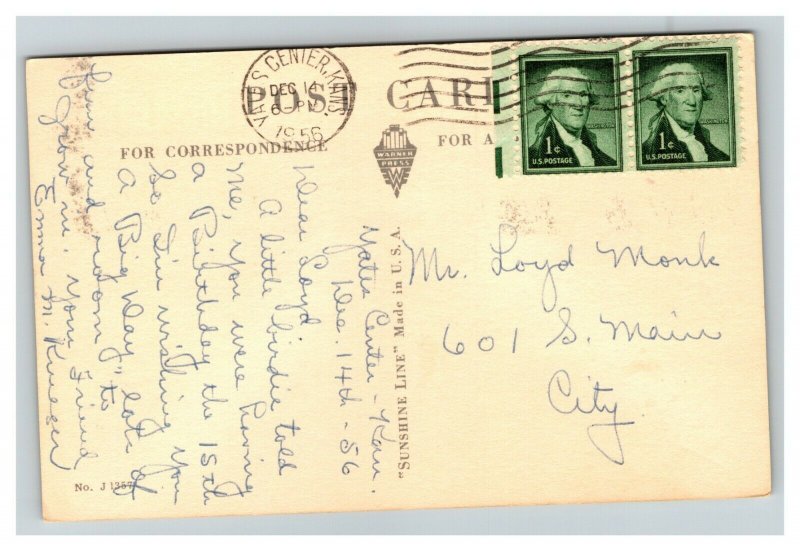 YATES CENTER, KANS.
DEC 14
6 PM
1956
POST CARD
FOR CORRESPONDENCE
FOR A
WARNER
PRESS
1¢
U.S. POSTAGE
WASHINGTON
1¢
U.S. POSTAGE
WASHINGTON
Yates Center - Kan.
Dec. 14th - 56
Dear Loyd
A little birdie told
me, you were having
a Birthday the 15th
So I'm wishing you
a "Big Day," lots of
fun and room to
grow in. your Friend
Emma M.
"SUNSHINE LINE" Made in U.S.A.
Mr. Loyd Monk
601 S. Main
City.
No. J 1357